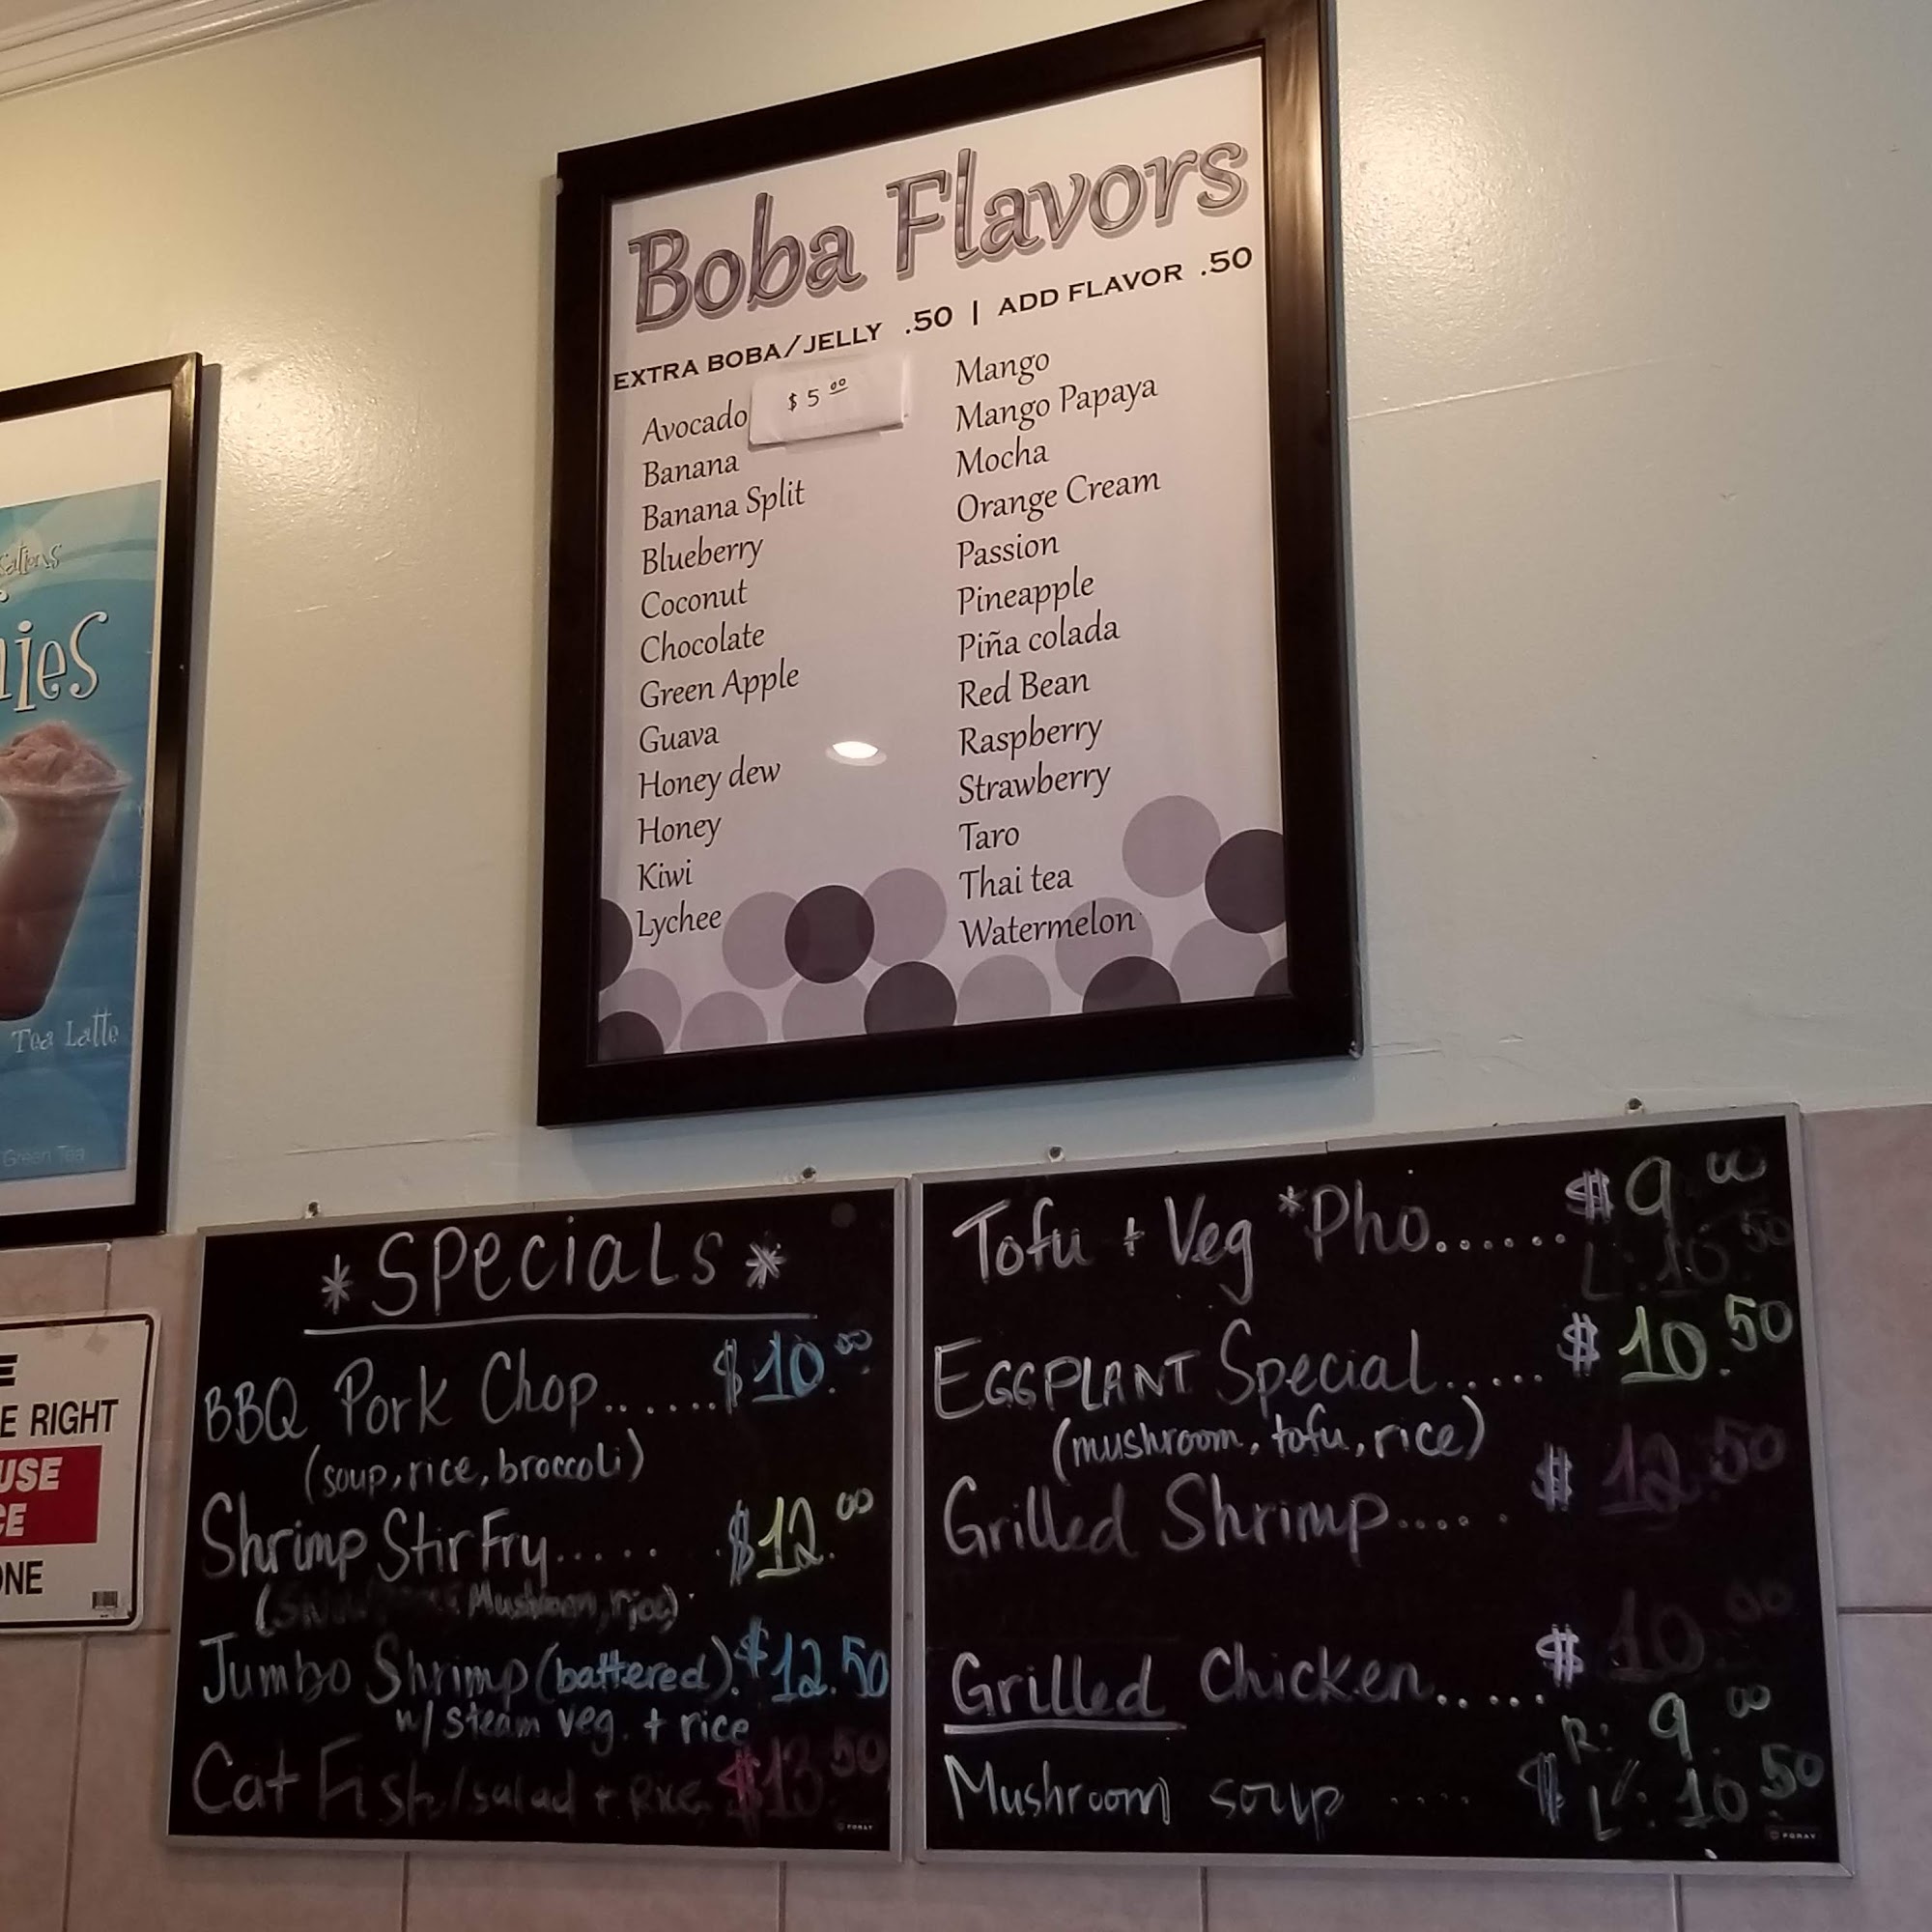 Boba Flavors
EXTRA BOBA/JELLY .50 | ADD FLAVOR .50
Avocado $5 00
Banana
Banana Split
Blueberry
Coconut
Chocolate
Green Apple
Guava
Honey dew
Honey
Kiwi
Lychee
Mango
Mango Papaya
Mocha
Orange Cream
Passion
Pineapple
Piña colada
Red Bean
Raspberry
Strawberry
Taro
Thai tea
Watermelon
Tea Latte
Green Tea
E RIGHT
USE
CE
ONE
*SPecials*
BBQ Pork Chop......$10.00
(soup, rice, broccoli)
Shrimp Stir Fry..... $12.00
Mushroom, rice)
Jumbo Shrimp (battered). $12.50
w/ steam veg. + rice
Cat Fish/salad + Rice $13.50
FORAY
Tofu + Veg *Pho...... $9.00
L: 10.50
EGGPLANT Special..... $10.50
(mushroom, tofu, rice)
Grilled Shrimp..... $12.50
Grilled Chicken..... $10.00
R: 9.00
Mushroom soup .... $ L: 10.50
FORAY